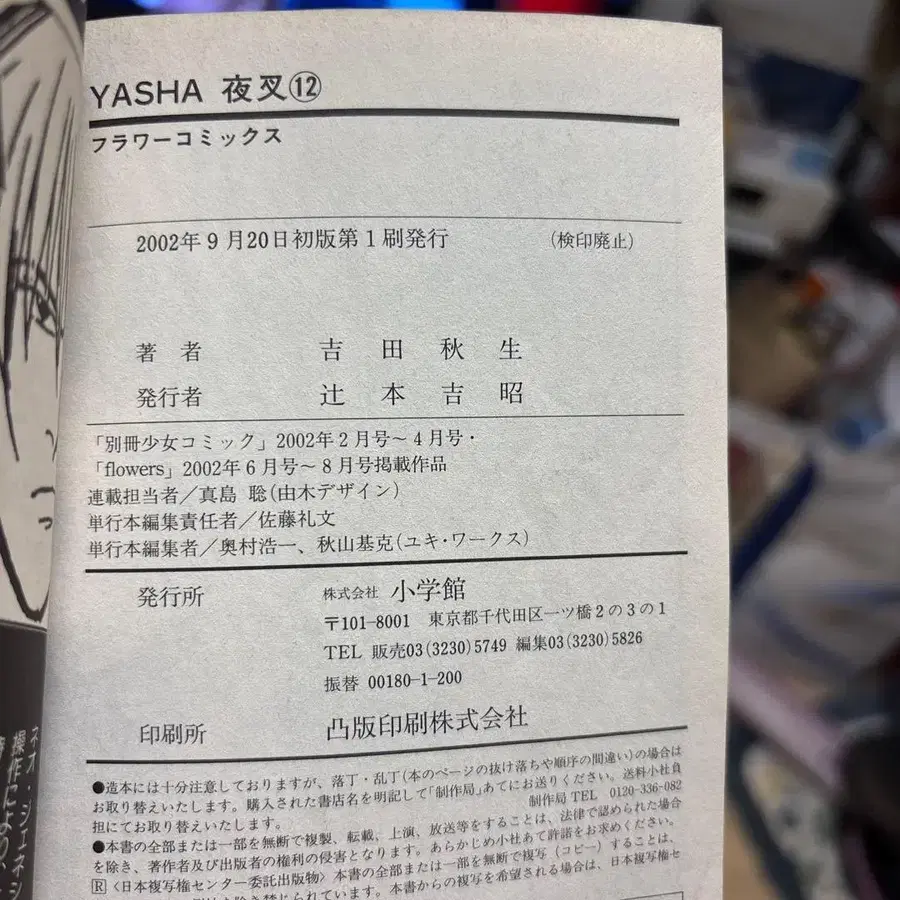 YASHA 夜叉⑫
フラワーコミックス
2002年9月20日初版第1刷発行 (検印廃止)
著者 吉田秋生
発行者 辻本吉昭
「別冊少女コミック」2002年2月号～4月号・
「flowers」2002年6月号～8月号掲載作品
連載担当者／真島 聡(由木デザイン)
単行本編集責任者／佐藤礼文
単行本編集者／奥村浩一、秋山基克(ユキ・ワークス)
発行所 株式会社 小学館
〒101-8001 東京都千代田区一ツ橋2の3の1
TEL 販売03(3230)5749 編集03(3230)5826
振替 00180-1-200
印刷所 凸版印刷株式会社
●造本には十分注意しておりますが、落丁・乱丁(本のページの抜け落ちや順序の間違い)の場合は
お取り替えいたします。購入された書店名を明記して「制作局」あてにお送りください。送料小社負
担にてお取り替えいたします。 制作局 TEL 0120-336-082
●本書の全部または一部を無断で複製、転載、上演、放送等をすることは、法律で認められた場合
を除き、著作者及び出版者の権利の侵害となります。あらかじめ小社あて許諾をお求めください。
Ⓡ〈日本複写権センター委託出版物〉本書の全部または一部を無断で複写(コピー)することは、
禁じられています。本書からの複写を希望される場合は、日本複写権セ
ネオ・ジェネシ
操作によ